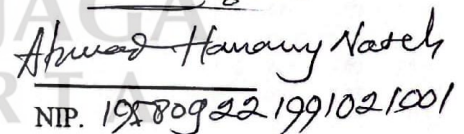 JAGA
RTA
Ahmad Hanany Naseh
NIP. 19580922 1991021001